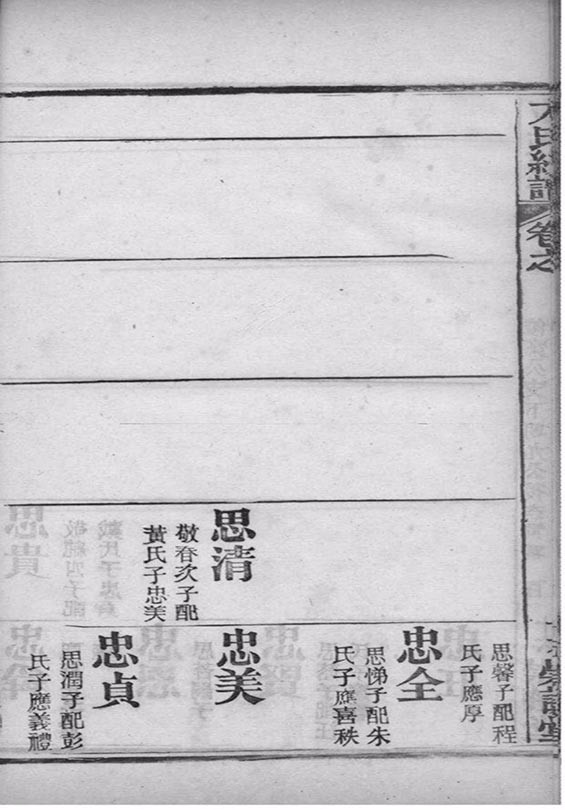 氏續譜
卷之
思馨子配程
氏子應厚
忠全
思悌子配朱
氏子應喜秩
思清
敬春次子配
黃氏子忠美
忠美
忠貞
思潤子配彭
氏子應義禮